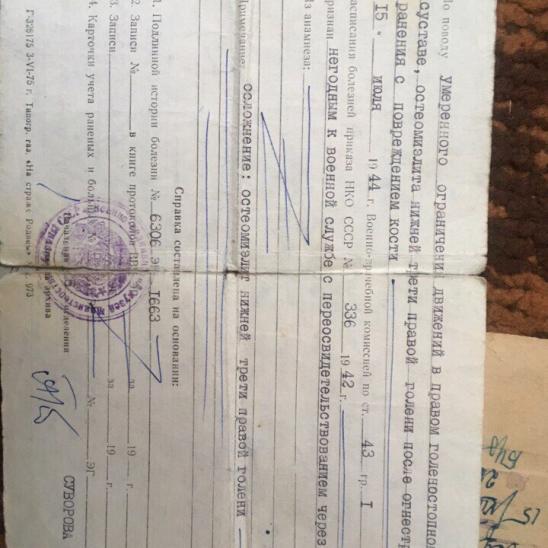 По поводу умеренного ограничени движений в правом голеностопно
суставе, остеомиэлита нижней трети правой голени после огнестр
ранения с повреждением кости.
15 " июля 1944 г. Военно-врачебной комиссией по ст. 43 гр. I
расписания болезней приказа НКО СССР № 336 1942 г.
признан негодным к военной службе с переосвидетельствованием через
Из анамнеза:
Примечание:
осложнение: остеомиэлит нижней трети правой голени
Справка составлена на основании:
1. Подлинной истории болезни № 6306 ЭГ 1663
2. Записи № в книге протоколов за 19 г.
3. Записи за 19 г.
4. Карточки учета раненых и больных № ЭГ
Начальник отделения
архива
СУВОРОВА
Г-328175 3-VI-75 г. Типогр. газ. «На страже Родины» 973